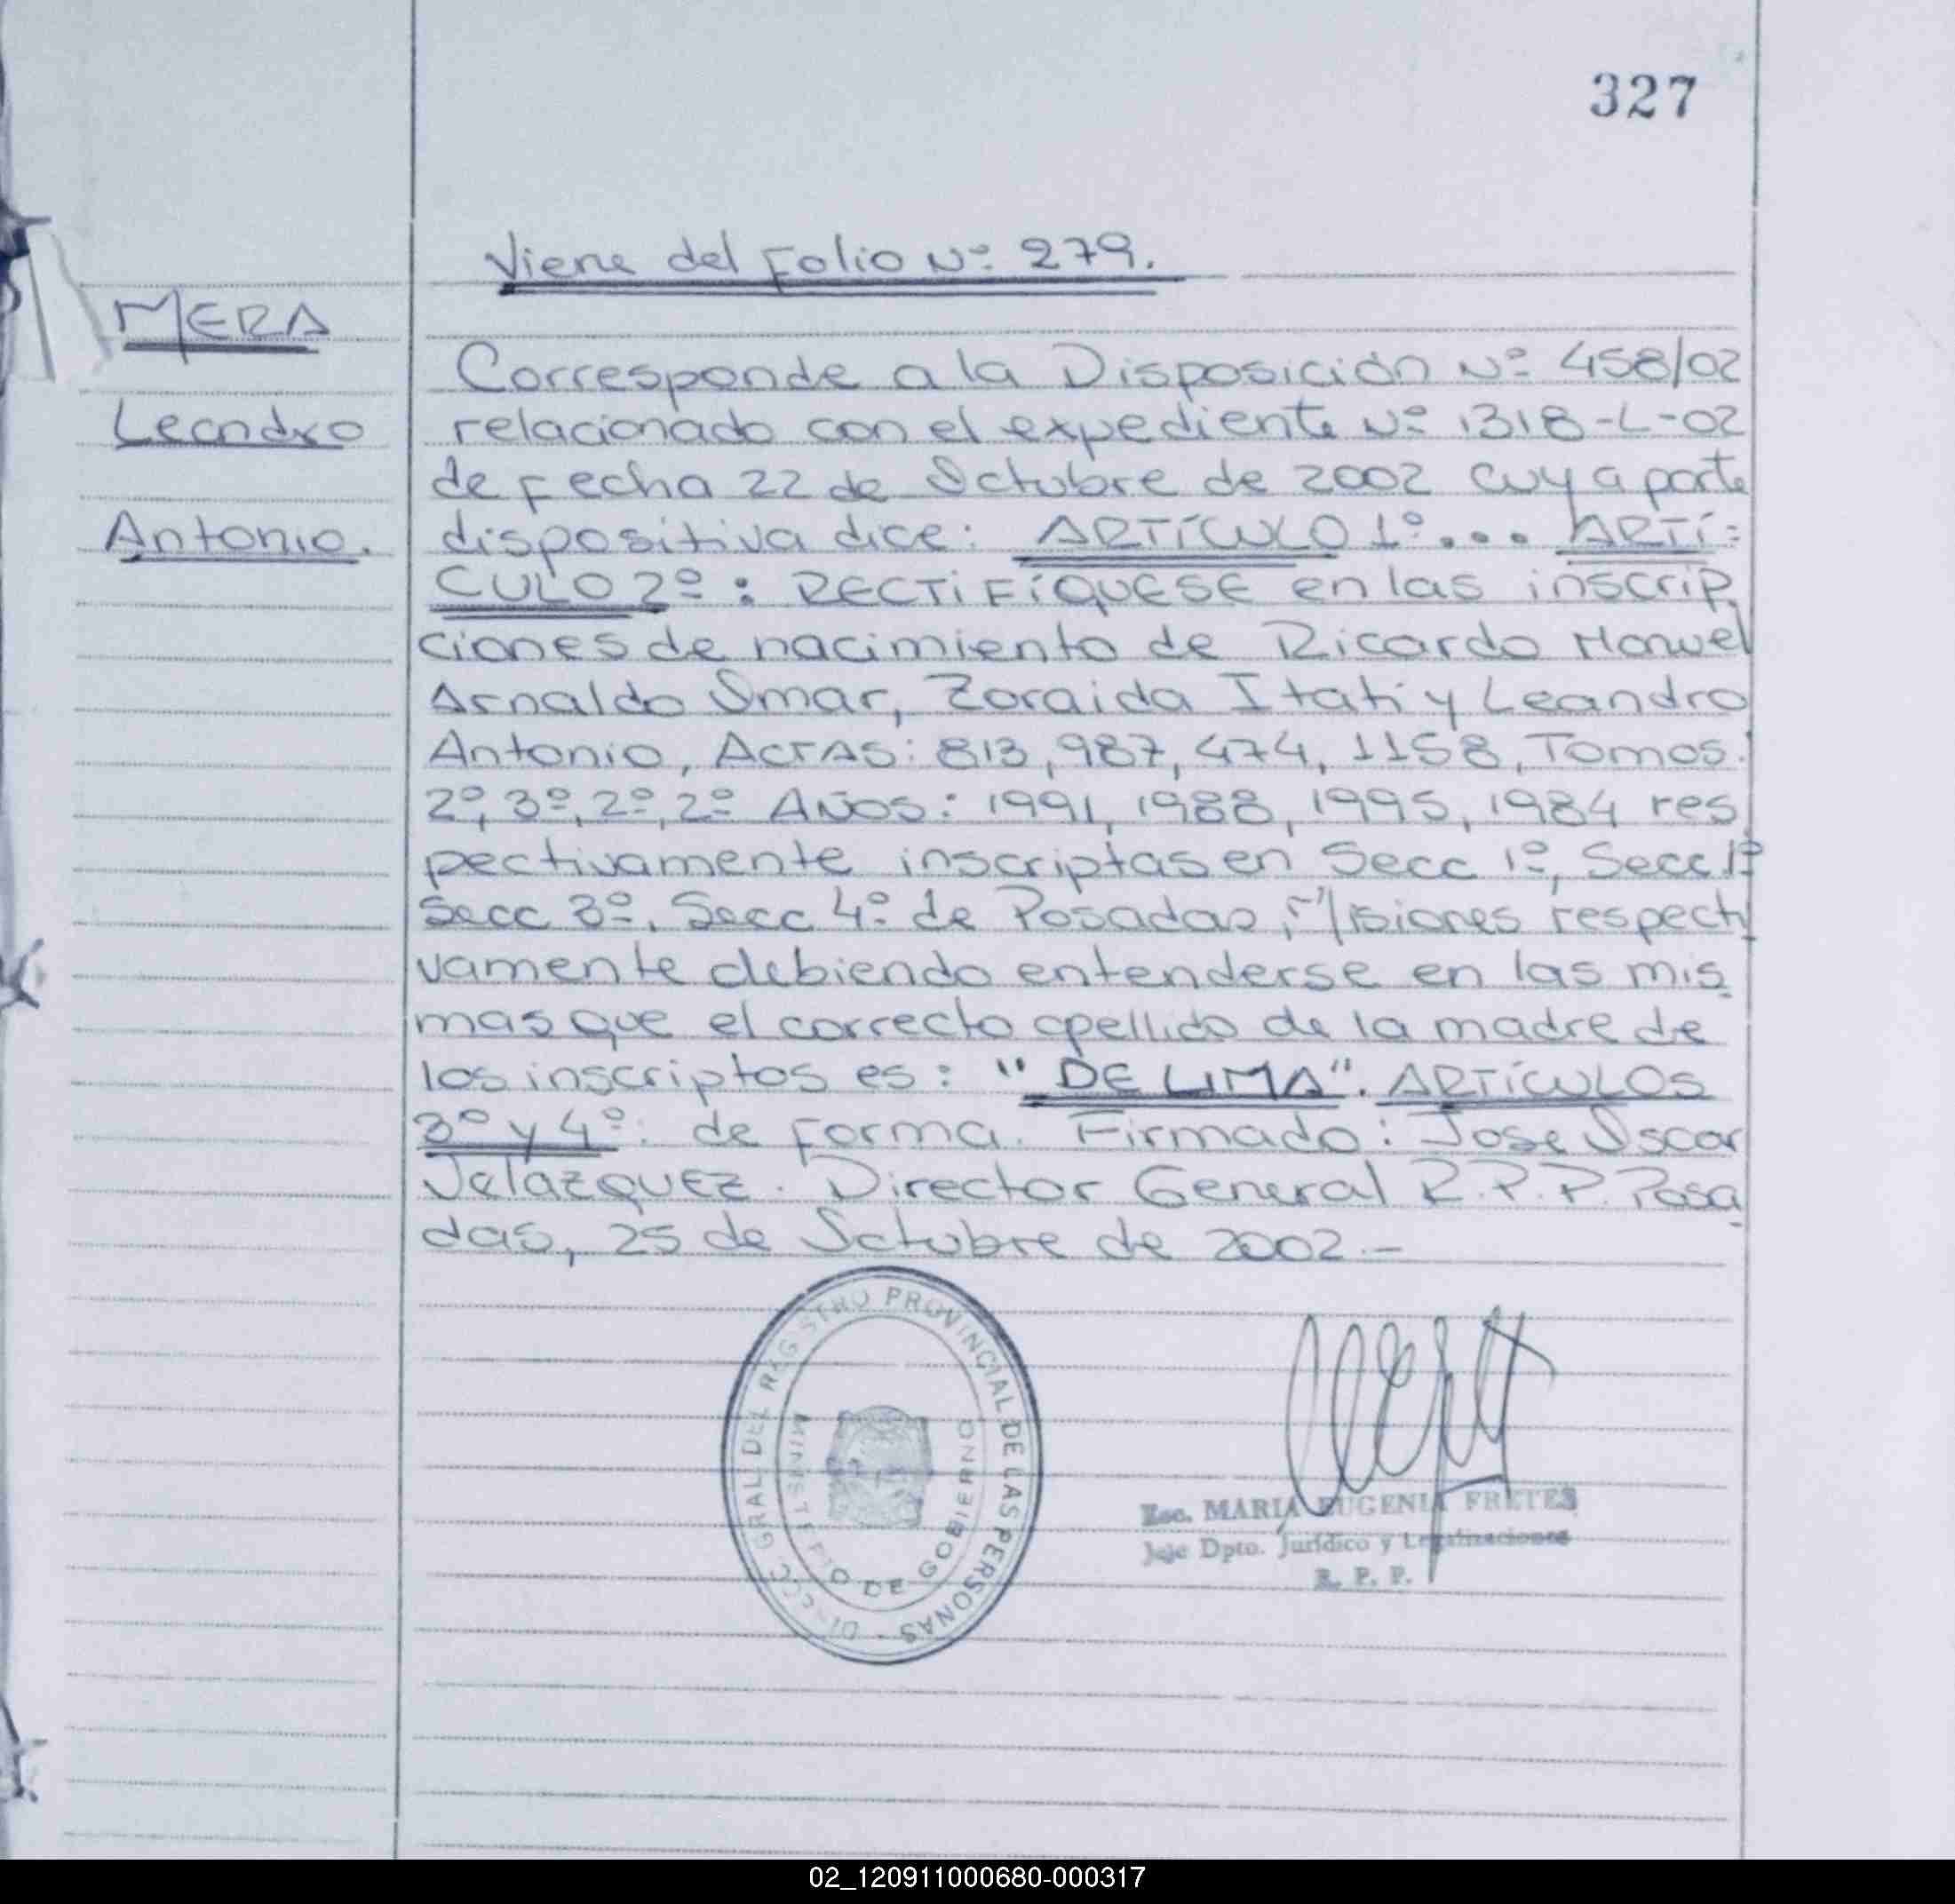 327
Viene del Folio Nº 279.
MERA
Leandro
Antonio.
Corresponde a la Disposición Nº 458/02
relacionado con el expediente Nº 1318-L-02
de Fecha 22 de Octubre de 2002 cuya parte
dispositiva dice: ARTÍCULO 1º... ARTÍ=
CULO 2º: RECTIFÍQUESE en las inscrip
ciones de nacimiento de Ricardo Manuel
Arnaldo Omar, Zoraida Itatí y Leandro
Antonio, ACTAS: 813, 987, 474, 1158, Tomos:
2º, 3º, 2º, 2º AÑOS: 1991, 1988, 1995, 1984 res
pectivamente inscriptas en Secc 1º, Secc 1º
Secc 3º, Secc 4º de Posadas, Misiones respecti
vamente debiendo entenderse en las mis
mas que el correcto apellido de la madre de
los inscriptos es: "DE LIMA". ARTÍCULOS
3º y 4º: de forma. Firmado: Jose Oscar
Velazquez. Director General R.P.P. Posa
das, 25 de Octubre de 2002.-
DIRECC. GRAL DEL REGISTRO PROVINCIAL DE LAS PERSONAS -
MINISTERIO DE GOBIERNO
Esc. MARIA EUGENIA FRETES
Jefe Dpto. Jurídico y Legalizaciones
R. P. P.
02_120911000680-000317